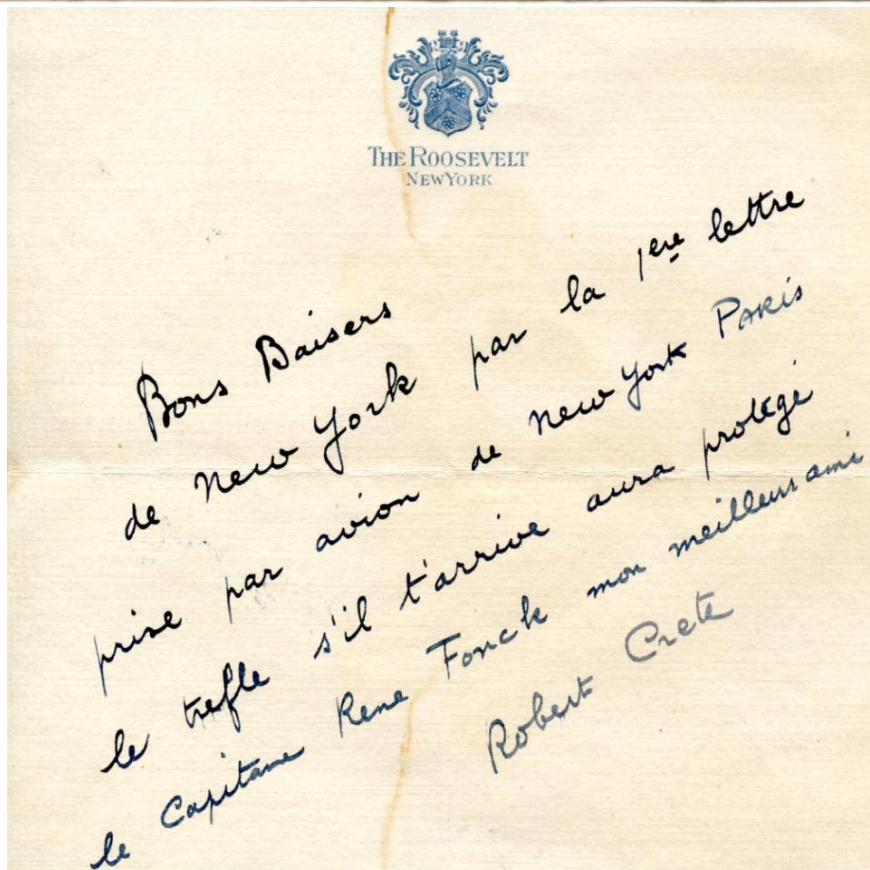 THE ROOSEVELT
NEW YORK
Bons Baisers
de New York par la 1ere lettre
prise par avion de New York PARIS
le trefle s'il t'arrive aura protégé
le Capitaine Rene Fonck mon meilleur ami
Robert Crete